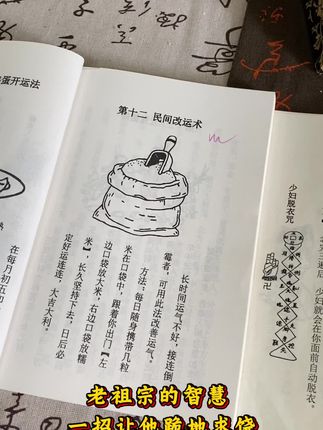 蛋开运法
在每月初五
第十二 民间改运术
长时间运气不好,接连倒
霉者,可用此法改善运气。
方法:每日随身携带几粒
米在口袋中,跟着你出门【左
边口袋放大米,右边口袋放糯
米】,长久坚持下去,日后必
定好运连连,大吉大利。
少妇脱衣咒
少妇就会在你
面前自动脱衣。
老祖宗的智慧
一招让他跪地求饶